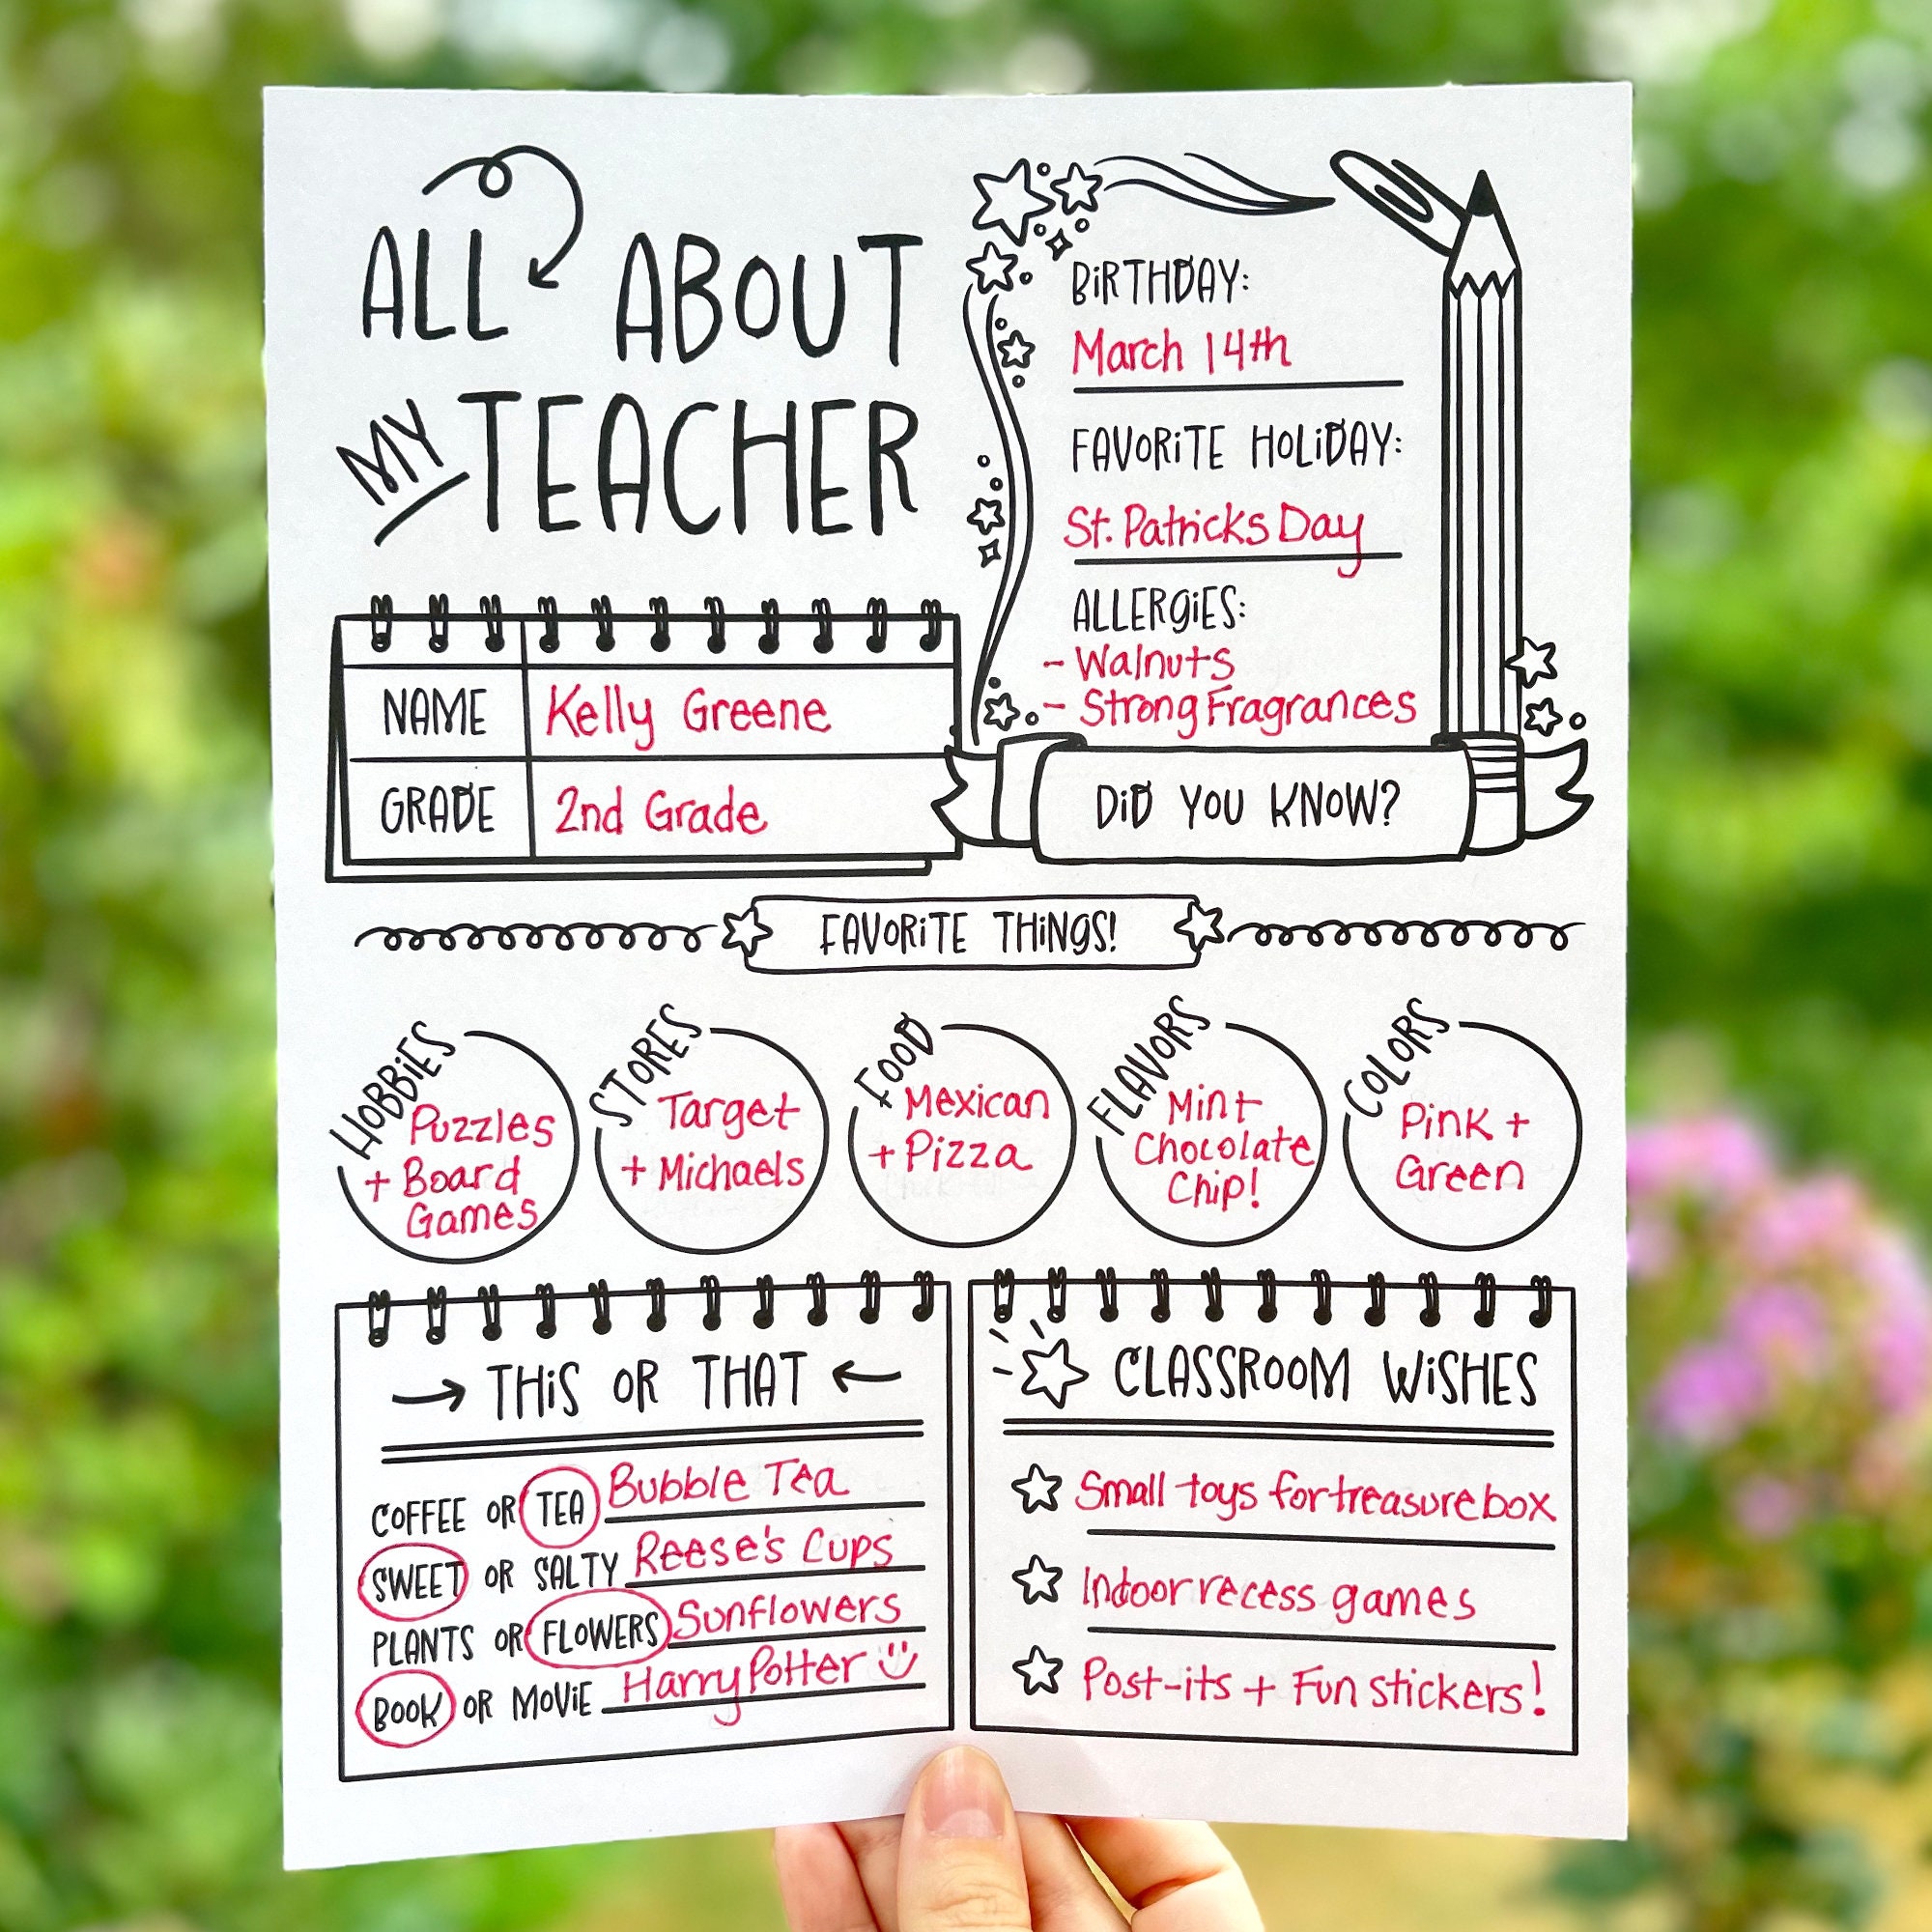 ALL ABOUT
MY TEACHER
BIRTHDAY:
March 14th
FAVORITE HOLIDAY:
St. Patricks Day
ALLERGIES:
- Walnuts
- Strong Fragrances
DID YOU KNOW?
NAME Kelly Greene
GRADE 2nd Grade
FAVORITE THINGS!
HOBBIES
Puzzles
+ Board
Games
STORES
Target
+ Michaels
FOOD
Mexican
+ Pizza
FLAVORS
Mint
Chocolate
Chip!
COLORS
Pink +
Green
THIS OR THAT
COFFEE OR TEA Bubble Tea
SWEET OR SALTY Reese's Cups
PLANTS OR FLOWERS Sunflowers
BOOK OR MOVIE Harry Potter
CLASSROOM WISHES
Small toys for treasure box
Indoor recess games
Post-its + Fun stickers!